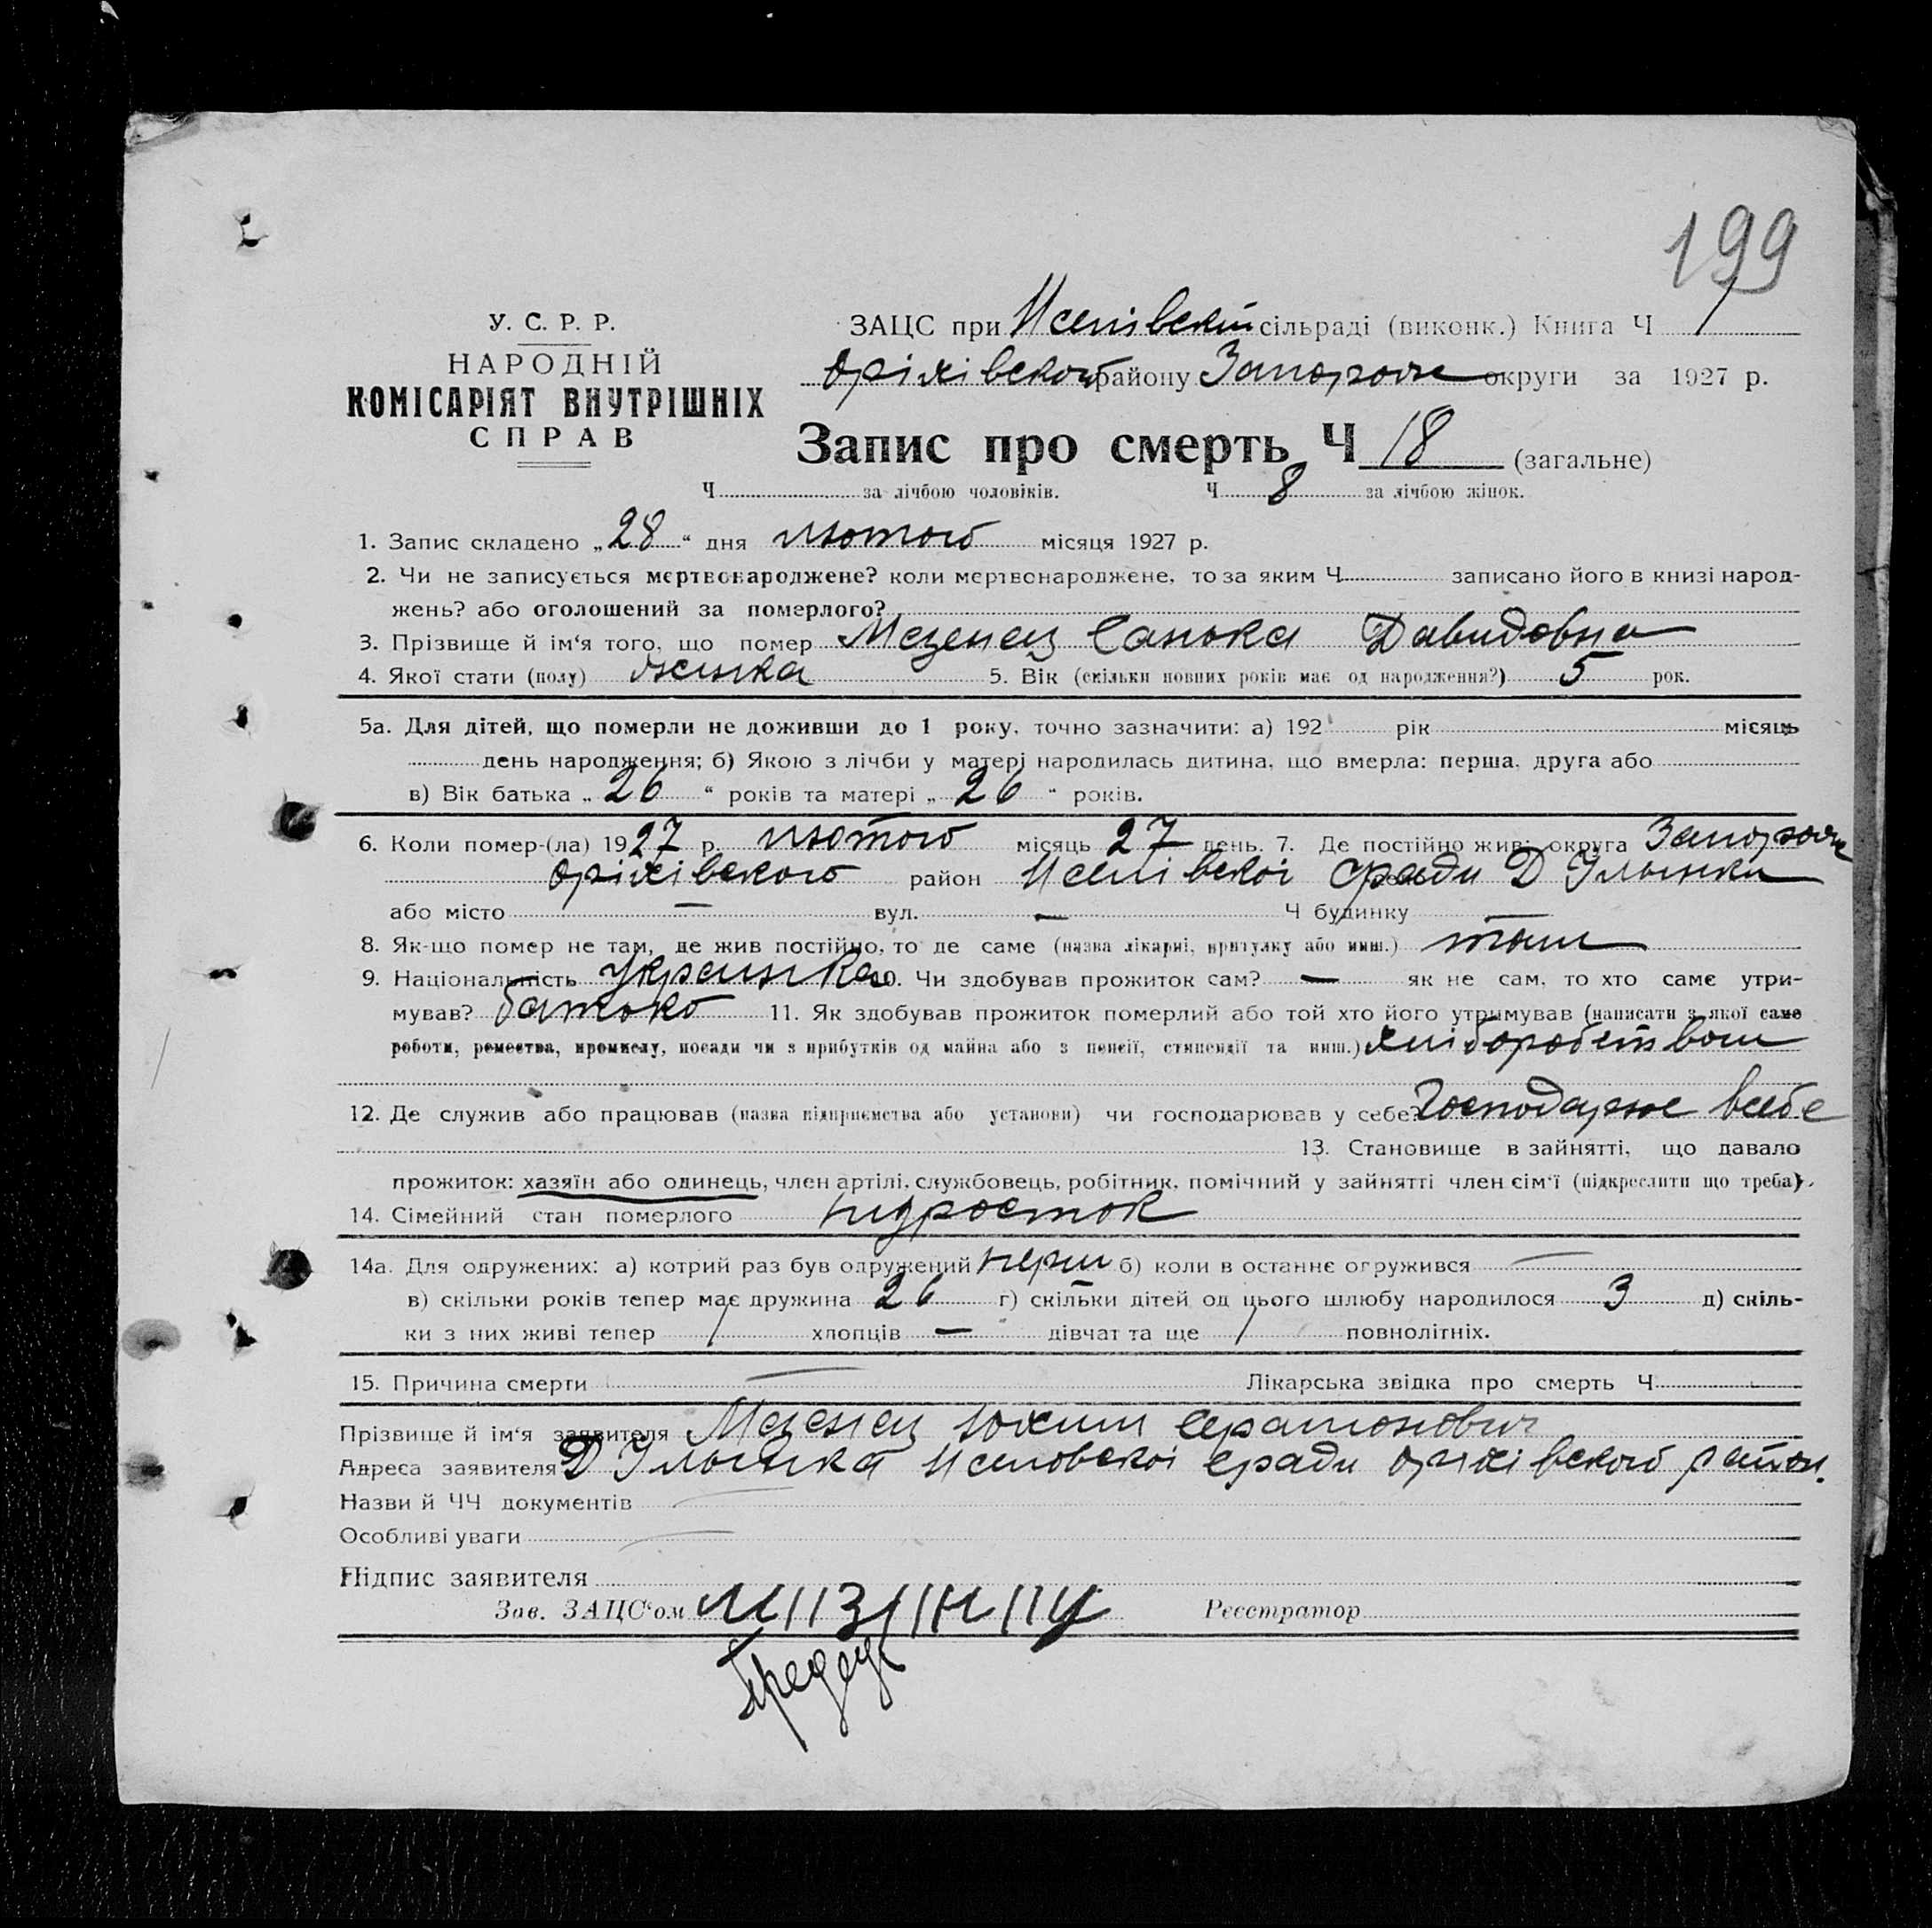 199
У. С. Р. Р.
НАРОДНІЙ
КОМІСАРІЯТ ВНУТРІШНІХ
СПРАВ
ЗАЦС при сільраді (виконк.) Книга Ч 1
Оріхівского району Запорожж округи за 1927 р.
Запис про смерть Ч 18 (загальне)
Ч за лічбою чоловіків. Ч 8 за лічбою жінок.
1. Запис складено „28“ дня лютого місяця 1927 р.
2. Чи не записується мертвонароджене? коли мертвонароджене, то за яким Ч записано його в книзі народ-
жень? або оголошений за померлого?
3. Прізвище й ім‘я того, що помер Мазенец Санька Давидовна
4. Якої стати (полу) жинка 5. Вік (скільки повних років має од народження?) 5 рок.
5а. Для дітей, що померли не доживши до 1 року, точно зазначити: а) 192 рік місяць
день народження; б) Якою з лічби у матері народилась дитина, що вмерла: перша, друга або
в) Вік батька „26“ років та матері „26“ років.
6. Коли помер-(ла) 1927 р. лютого місяць 27 день. 7. Де постійно жив: округа Запорожж
Оріхівского район сради Д
або місто — вул. — Ч будинку —
8. Як-що помер не там, де жив постійно, то де саме (назва лікарні, притулку або инш.) там
9. Національність Украинка 10. Чи здобував прожиток сам? — як не сам, то хто саме утри-
мував? батько 11. Як здобував прожиток померлий або той хто його утримував (написати з якої саме
роботи, ремества, промислу, посади чи з прибутків од майна або з пенсії, стипендії та инш.) хліборобством
12. Де служив або працював (назва підприємства або установи) чи господарював у себе? Господарює всебе
13. Становище в зайнятті, що давало
прожиток: хазяїн або одинець, член артілі, службовець, робітник, помічний у зайнятті член сім‘ї (підкреслити що треба).
14. Сімейний стан померлого підросток
14а. Для одружених: а) котрий раз був одружений перш б) коли в останнє огружився —
в) скільки років тепер має дружина 26 г) скільки дітей од цього шлюбу народилося 3 д) скіль-
ки з них живі тепер 1 хлопців — дівчат та ще 1 повнолітніх.
15. Причина смерти — Лікарська звідка про смерть Ч
Прізвище й ім‘я заявителя Мазенец Юхим
Адреса заявителя Д сради Оріхівского район.
Назви й ЧЧ документів —
Особливі уваги —
Підпис заявителя
Зав. ЗАЦС‘ом Реєстратор